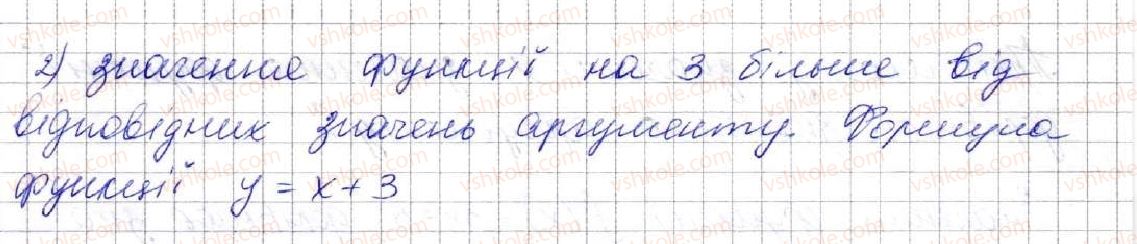 2) значення функцій на 3 більше від
відповідних значень аргументу. Формула
функцій y = x + 3